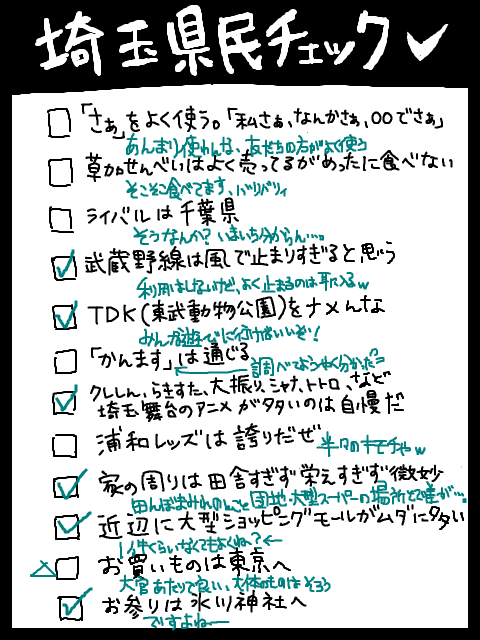 埼玉県民チェック✓
「さぁ」をよく使う。「私さぁ、なんかさぁ、○○でさぁ」
あんまり使わんな、友だちの方がよく使う
草加せんべいはよく売ってるがめったに食べない
そこそこ食べてます、バリバリィ
ライバルは千葉県
そうなんか?いまいち分からん…。
武蔵野線は風で止まりすぎると思う
利用はしないけど、よく止まるのは耳に入るw
TDK(東武動物公園)をナメんな
みんな遊びに行けばいいぞ!
「かんます」は通じる
調べてようやく分かった
クレしん、らきすた、大振り、シャナ、トトロ、など
埼玉舞台のアニメが多いのは自慢だ
浦和レッズは誇りだぜ
半々の
家の周りは田舎すぎず栄えすぎず微妙
田んぼまみれのとこと団地・大型スーパーの場所とで差が…。
近辺に大型ショッピングモールがムダに多い
1件くらいなくてもよくね?←
△
お買いものは東京へ
大宮あたりで良い、大体のものはそろう
お参りは氷川神社へ
ですよねー